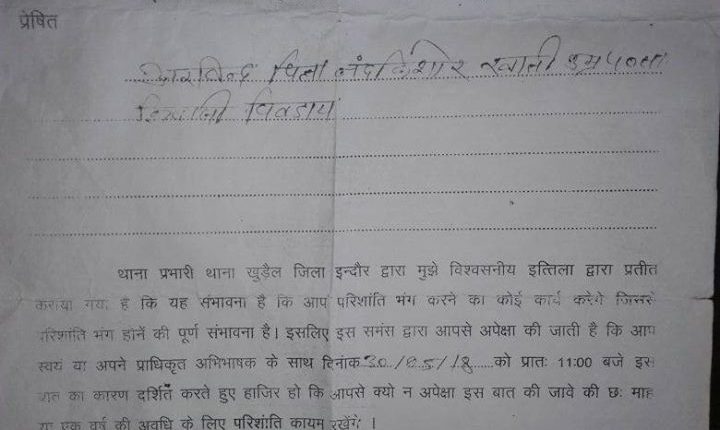 प्रेषित
पिता नंदकिशोर खाती उम्र 50
थाना प्रभारी थाना खुड़ैल जिला इन्दौर द्वारा मुझे विश्वसनीय इत्तिला द्वारा प्रतीत
कराया गया है कि यह संभावना है कि आप परिशांति भंग करने का कोई कार्य करेगे जिससे
परिशांति भंग होनें की पूर्ण संभावना है। इसलिए इस समंस द्वारा आपसे अपेक्षा की जाती है कि आप
स्वयं या अपने प्राधिकृत अभिभाषक के साथ दिनांक 30/05/18 को प्रातः 11:00 बजे इस
बात का कारण दर्शित करते हुए हाजिर हो कि आपसे क्यो न अपेक्षा इस बात की जावे की छः माह
या एक वर्ष की अवधि के लिए परिशांति कायम रखेंगे ।